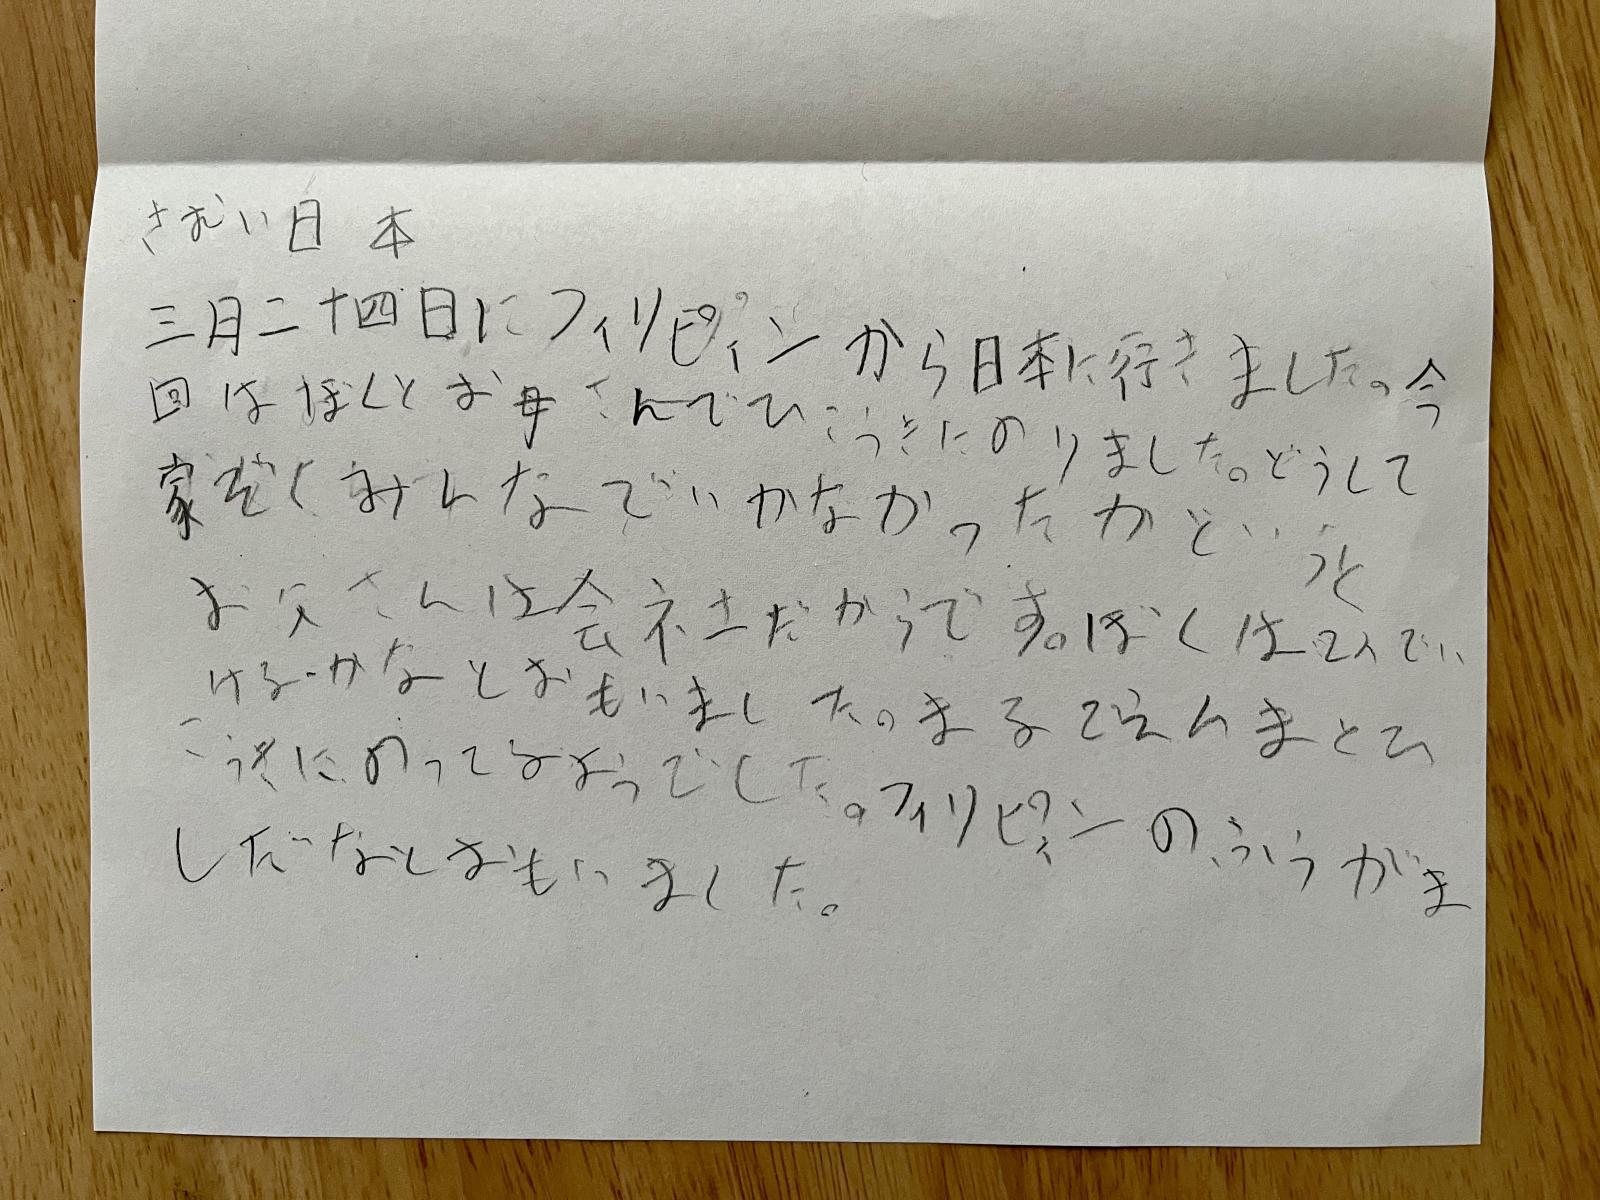 さむい日本
三月二十四日にフィリピィンから日本に行きました。今
回はぼくとお母さんでひこうきにのりました。どうして
家ぞくみんなでいかなかったかというと
お父さんは会社だからです。ぼくは でい
けるかなとおもいました。まるでえんまとひ
こうきにのってるようでした。フィリピィンのふうがま
しだなとおもいました。